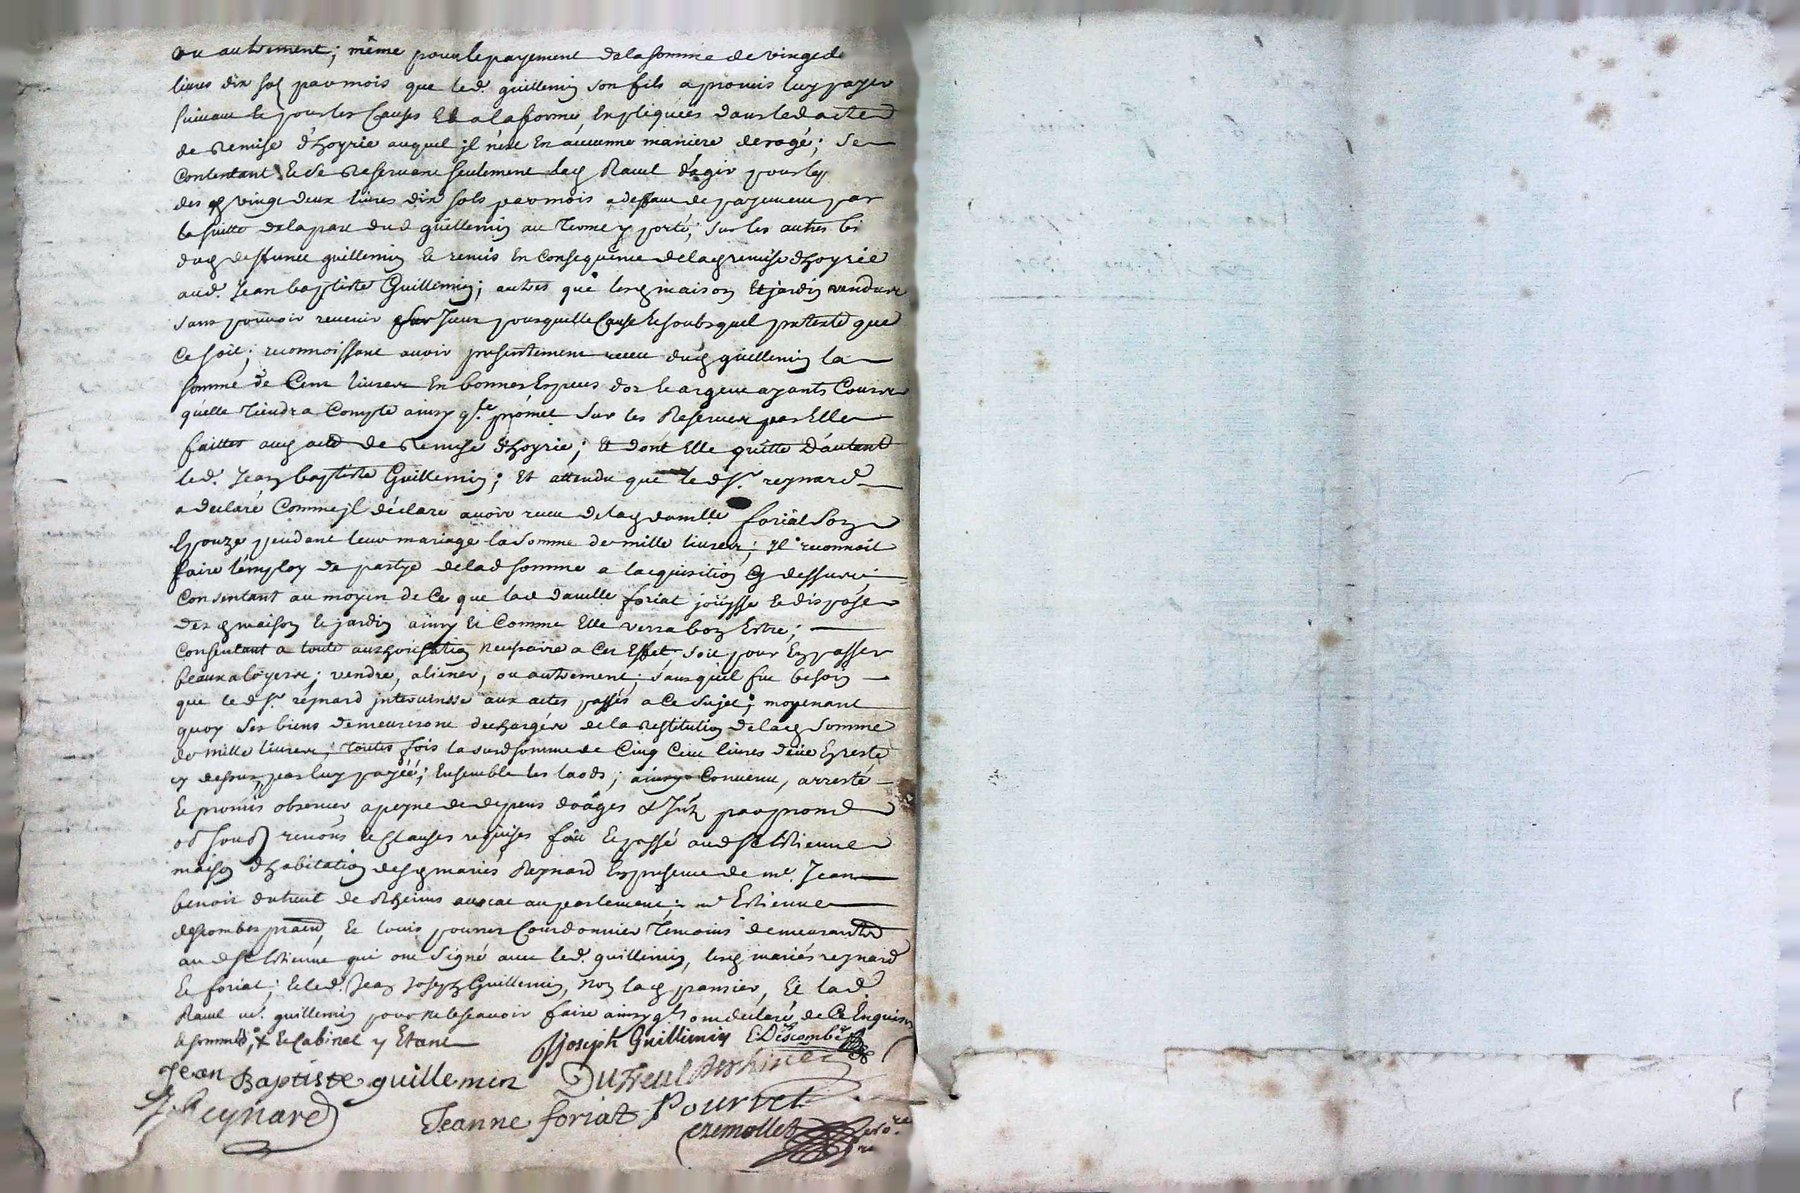 ou autrement; même pour le payement de la somme de vingt de
livres dix sols par mois que led. guillemin son fils a promis luy payer
suivant et pour les causes Et a la forme Expliquées dans led acte
de Remise d'hoyrie auquel il n'est En aucunne maniere derogé; Se
contentant Et se Reservant seulement lad Ravel d'agir pour les
des vingt deux livres dix sols par mois a deffaut de payement par
la suitte de la part dud guillemin au terme y porté, sur les autres bi
dud deffunct guillemin Et remis En consequence de lad remise d'hoyrie
aud. Jean baptiste Guillemin; autres que lesd maison Et jardin vendus
sans pouvoir revenir sur Iceux pour quelle cause Et soubs quel pretexte que
Ce soit; reconnoissant avoir presentement receu dud guillemin la
somme de Cent livres En bonnes Especes d'or Et argent ayants Cours
qu'elle tiendra Compte ainsy promet sur les Reserves par Elle
faittes aud acte de Remise d'hoyrie; Et dont Elle quitte D'autant
led. Jean baptiste Guillemin; Et attendu que le dsr. reynard
a declaré Comme il déclare avoir receu de lad damlle foriat Son
Epouze pendant leur mariage la somme de mille livres; Il reconnoit
faire l'employ de partye de lad somme a l'acquisition cy dessus;
Consentant au moyen de Ce que lad damlle foriat joüysse Et dispose
desd maison Et jardin ainsy Et Comme Elle verra bon Estre;
Consentant a toute authorisation necessaire a Cet Effet soit pour En passer
beaux a loyers; vendre, aliener, ou autrement; sans quil fut besoin
que le dsr. reynard intervinsse aux actes passés a Ce sujet; moyenant
quoy ses biens demeureront dechargés de la restitution de lad somme
de mille livres; toutes fois la susd somme de Cinq Cent livres deüe En reste
cy dessus par luy payéé; Ensemble les laods; ainsy Convenu, arresté
Et promis observer a peyne de depens
renons et clauses requises fait Et passé aud St Etienne
maison d'habitation desd mariés Reynard En presence de me. Jean
benoit dutreul de Rheims avocat au parlement; me Estienne
descombes praten, Et louis pourret Cordonnier temoins demeurants
aud St Etienne qui ont signé avec led. guillemin, lesd mariés reynard
Et foriat; Et led. Jean Joseph Guillemin, Non lad pansier, Et lad
Ravel ve. guillemin pour ne le scavoir faire ainsy qls ont declaré de Ce Enquis
Et sommés; + Et Cabinet y Etant
JJoseph Guillemin E Descombes
Jean Baptiste guillemin Dutreul
J. Reynard Jeanne foriat Pourret